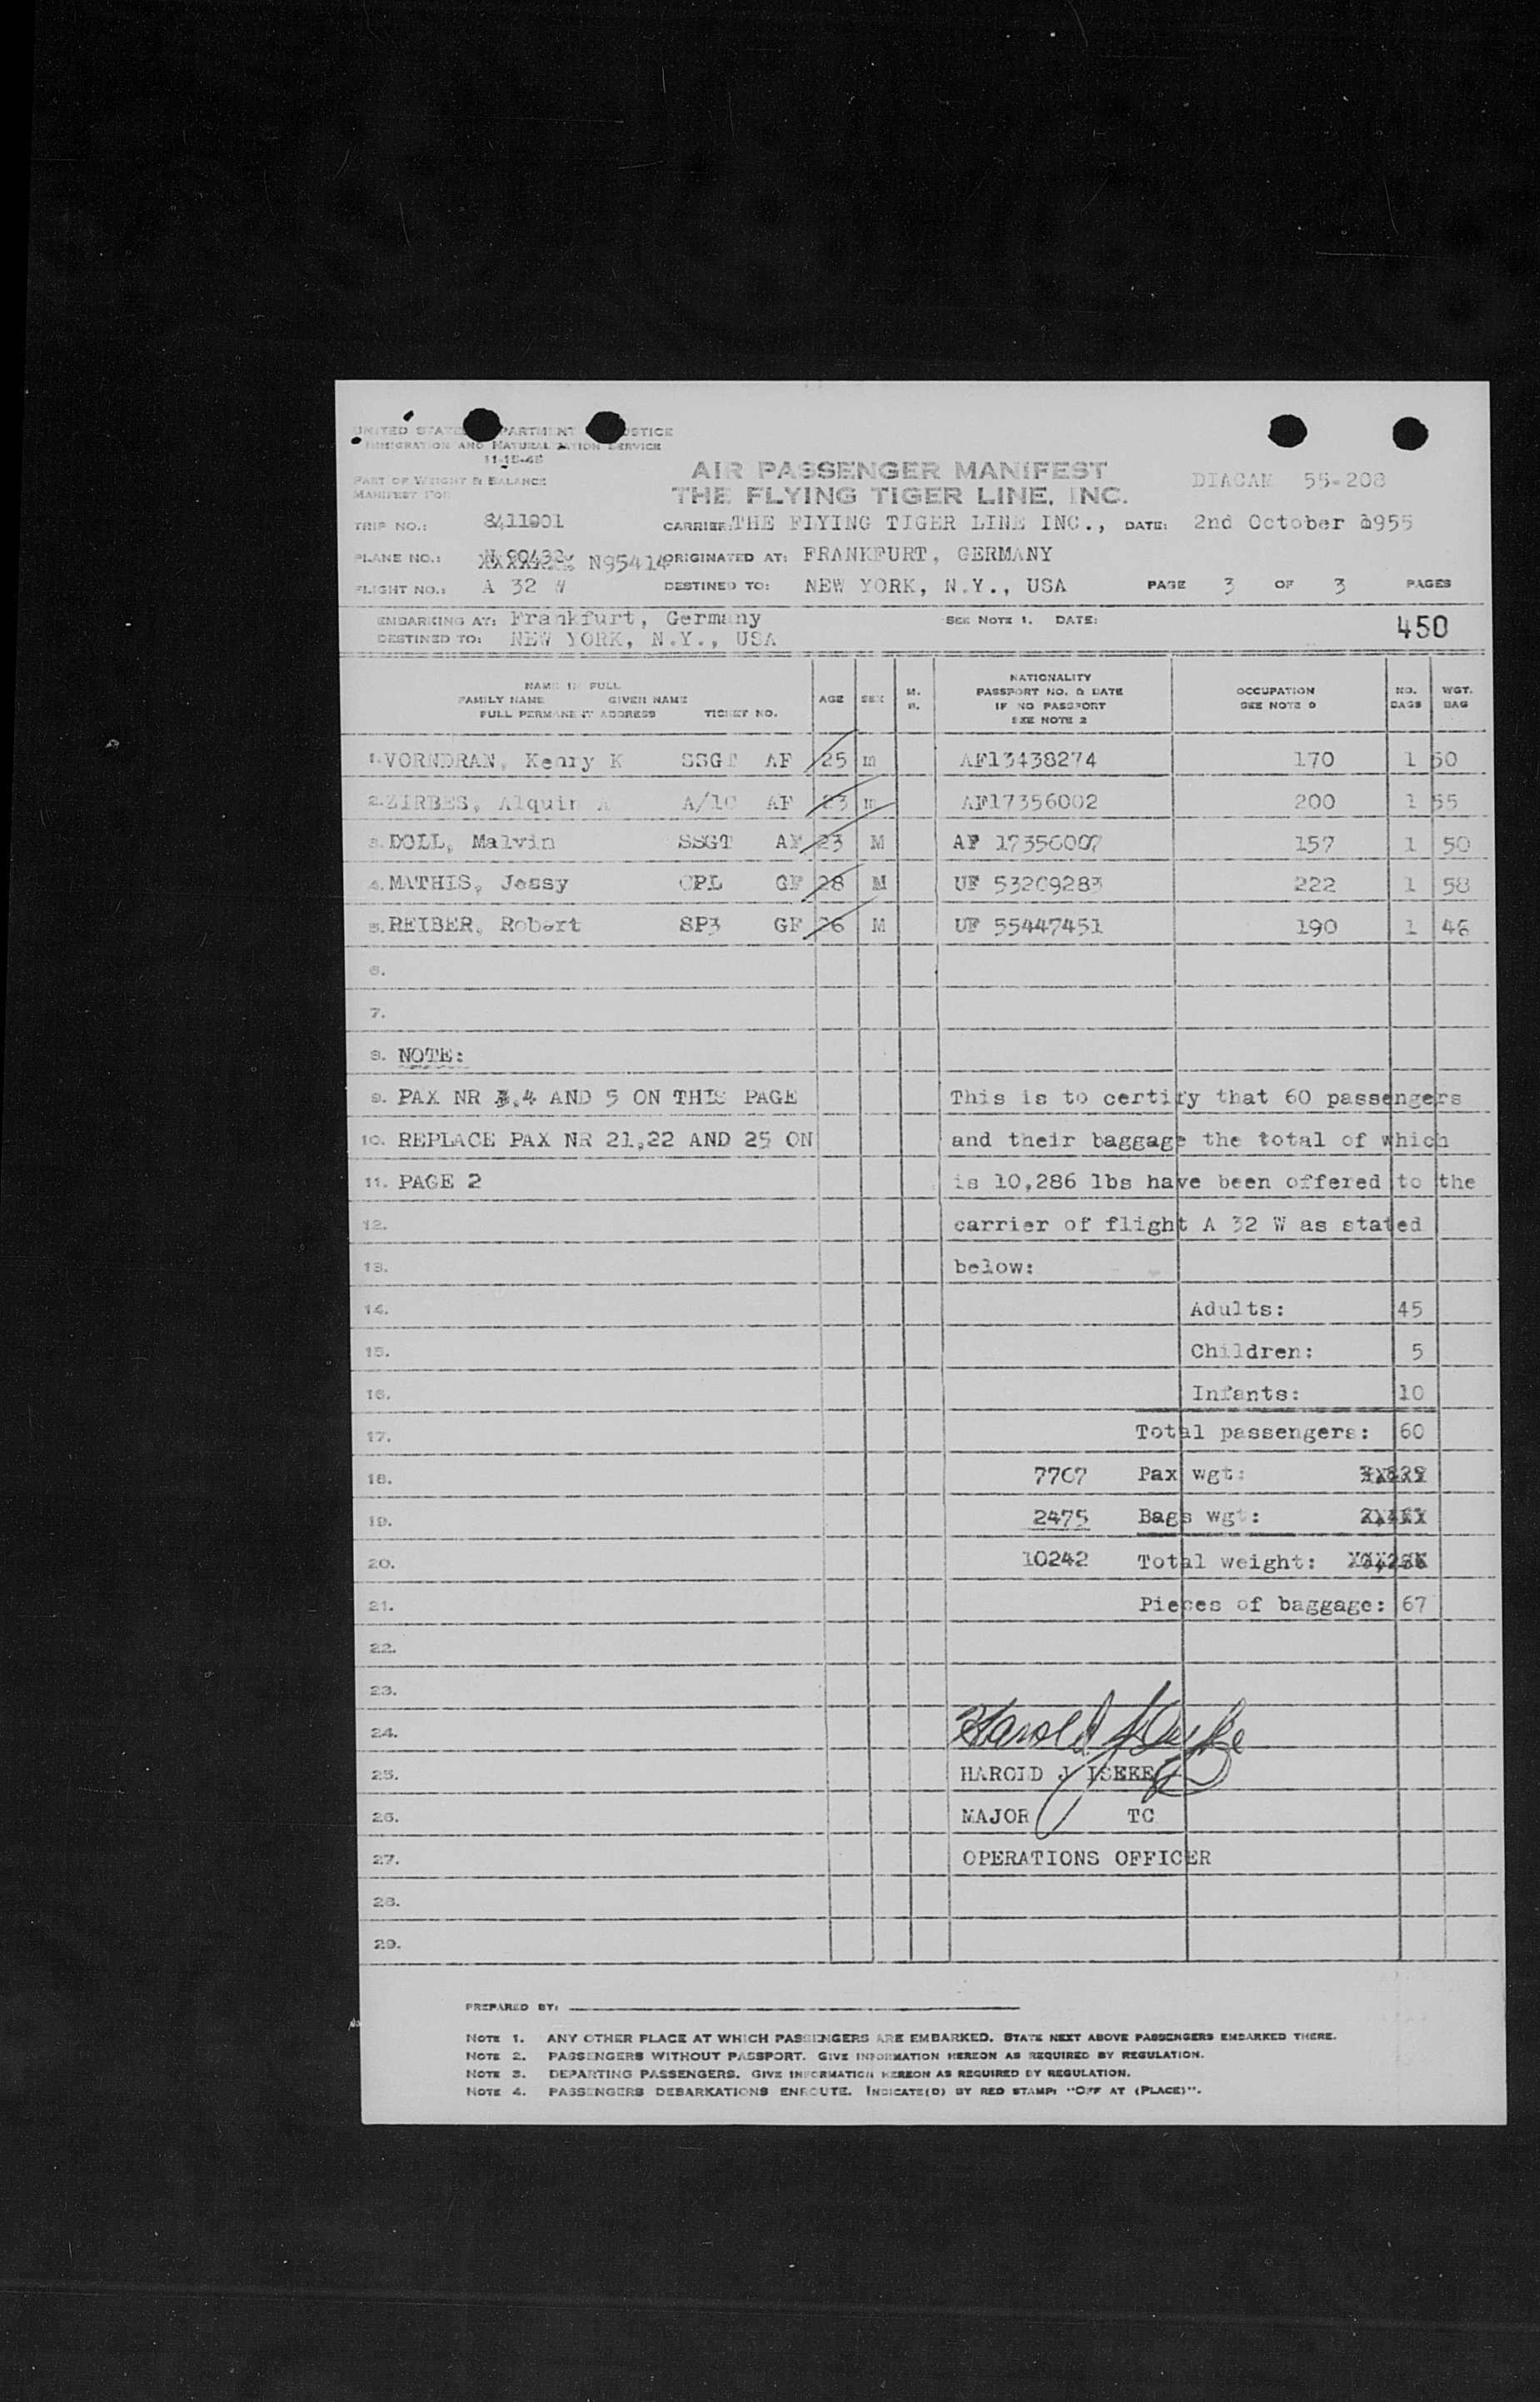 UNITED STATES DEPARTMENT JUSTICE
IMMIGRATION AND NATURALIZATION SERVICE
11-15-48
PART OF WEIGHT & BALANCE
MANIFEST FOR
AIR PASSENGER MANIFEST
THE FLYING TIGER LINE, INC.
DIACAN 55-208
TRIP NO.: 8411001 CARRIER: THE FLYING TIGER LINE INC., DATE: 2nd October 1955
PLANE NO.: N95414 ORIGINATED AT: FRANKFURT, GERMANY
FLIGHT NO.: A 32 W DESTINED TO: NEW YORK, N.Y., USA PAGE 3 OF 3 PAGES
EMBARKING AT: Frankfurt, Germany SEE NOTE 1. DATE: 450
DESTINED TO: NEW YORK, N.Y., USA
NAME IN FULL
FAMILY NAME GIVEN NAME
FULL PERMANENT ADDRESS TICKET NO.
AGE SEX
NATIONALITY
PASSPORT NO. & DATE
IF NO PASSPORT
SEE NOTE 2
OCCUPATION
SEE NOTE
NO. BAGS
WGT. BAG
1. VORNDRAN, Kenry K SSGT AF 25 m AF13438274 170 1 50
2. ZIRBES, Alquin A A/1C AF 23 m AF17356002 200 1 55
3. DOLL, Malvin SSGT AF 23 M AF 17356007 157 1 50
4. MATHIS, Jessy CPL GF 28 M UF 53209283 222 1 58
5. REIBER, Robert SP3 GF 26 M UF 55447451 190 1 46
6.
7.
8. NOTE:
9. PAX NR 3,4 AND 5 ON THIS PAGE This is to certify that 60 passengers
10. REPLACE PAX NR 21,22 AND 25 ON and their baggage the total of which
11. PAGE 2 is 10,286 lbs have been offered to the
12. carrier of flight A 32 W as stated
13. below:
14. Adults: 45
15. Children: 5
16. Infants: 10
17. Total passengers: 60
18. 7767 Pax wgt:
19. 2475 Bags wgt:
20. 10242 Total weight:
21. Pieces of baggage: 67
22.
23.
24. Harold J Iseke
25. HAROLD J ISEKE
26. MAJOR TC
27. OPERATIONS OFFICER
28.
29.
PREPARED BY:
NOTE 1. ANY OTHER PLACE AT WHICH PASSENGERS ARE EMBARKED. STATE NEXT ABOVE PASSENGERS EMBARKED THERE.
NOTE 2. PASSENGERS WITHOUT PASSPORT. GIVE INFORMATION HEREON AS REQUIRED BY REGULATION.
NOTE 3. DEPARTING PASSENGERS. GIVE INFORMATION HEREON AS REQUIRED BY REGULATION.
NOTE 4. PASSENGERS DEBARKATIONS ENROUTE. INDICATE(D) BY RED STAMP: "OFF AT (PLACE)".